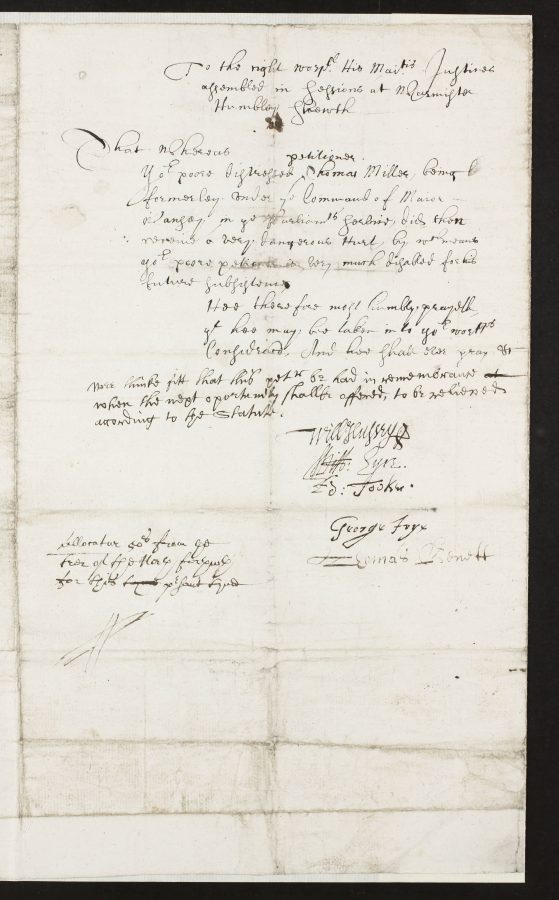 To the right worpll His Maties Justices
assembled in Sessions at Warmister
Humbley sheweth
That Whereas
Yor poore distressed petitioner Thomas Miller, being
formerley under ye Command of Maior
in ye Parliamts service, did then
receive a very dangerous Hurt, by wch meanes
yor poore petitioner is very much disabled for his
future subsistence
Hee therefore most humbly prayeth
yt hee may bee taken into yor worpps
Consideracon, And hee shall ever pray &c
Wee thinke fitt that this petr be had in remembrance
when the next oportunity shallbe offered, to be releived
according to the Statute.
Will Hussey
Eyre.
Ed: Tooker.
George Fryx
Thomas Benett
Allocatur from ye
trer of
for this present tyme